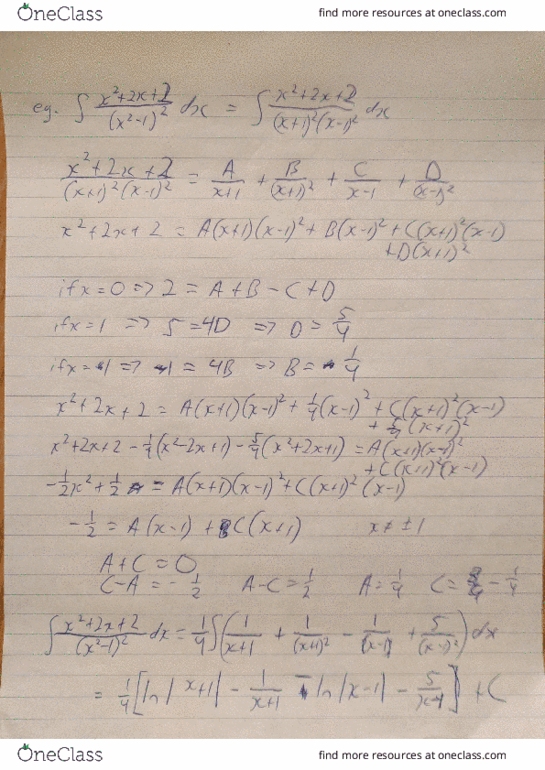 OneClass find more resources at oneclass.com
eg. ∫ (x²+2x+2)/(x²-1)² dx = ∫ (x²+2x+2)/((x+1)²(x-1)²) dx
(x²+2x+2)/((x+1)²(x-1)²) = A/(x+1) + B/(x+1)² + C/(x-1) + D/(x-1)²
x²+2x+2 = A(x+1)(x-1)² + B(x-1)² + C(x+1)²(x-1)
+D(x+1)²
if x=0 => 2 = A+B-C+D
if x=1 => 5=4D => D= 5/4
if x=-1 => 1 = 4B => B= 1/4
x²+2x+2 = A(x+1)(x-1)² + 1/4(x-1)² + C(x+1)²(x-1)
+ 5/4(x+1)²
x²+2x+2 - 1/4(x²-2x+1) - 5/4(x²+2x+1) = A(x+1)(x-1)²
+C(x+1)²(x-1)
-1/2x²+1/2 = A(x+1)(x-1)²+C(x+1)²(x-1)
-1/2 = A(x-1) + C(x+1) x≠±1
A+C=0
C-A=-1/2 A-C=1/2 A=1/4 C= -1/4
∫ (x²+2x+2)/(x²-1)² dx = 1/4∫(1/(x+1) + 1/(x+1)² - 1/(x-1) + 5/(x-1)²)dx
= 1/4[ln|x+1| - 1/(x+1) - ln|x-1| - 5/(x-1)] +C
OneClass find more resources at oneclass.com